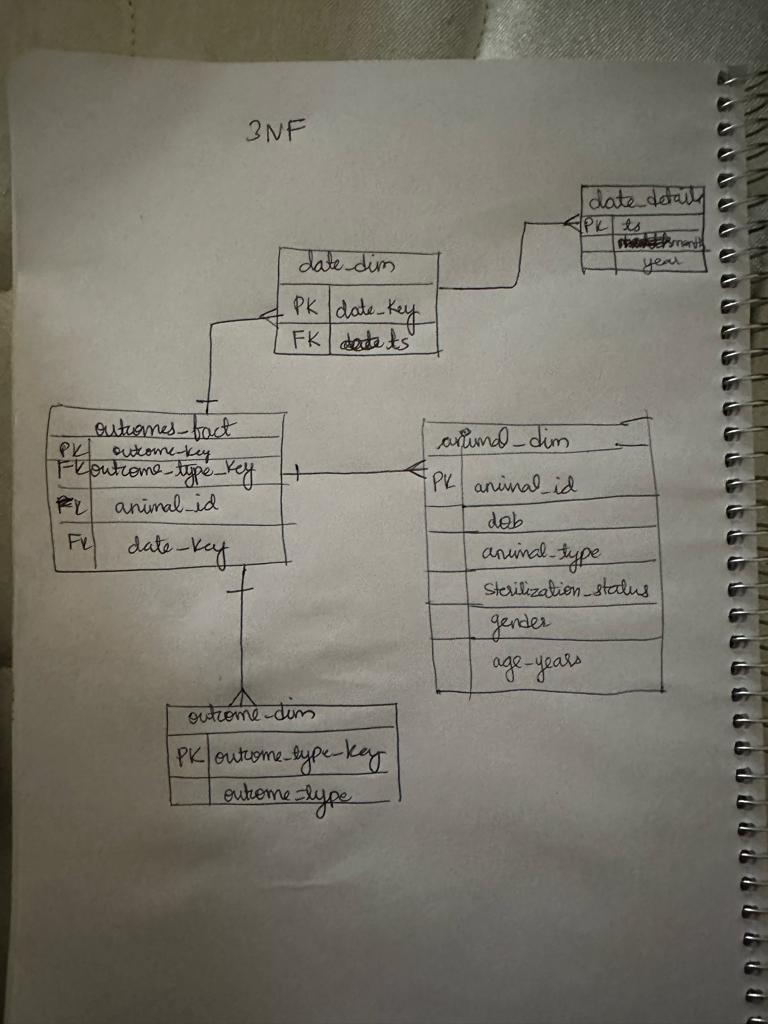 3NF
date_details
PK ts
month
year
date_dim
PK date_key
FK ts
outcomes_fact
PK outcome_key
FK outcome_type_key
FK animal_id
FK date_key
animal_dim
PK animal_id
dob
animal_type
sterilization_status
gender
age_years
outcome_dim
PK outcome_type_key
outcome_type